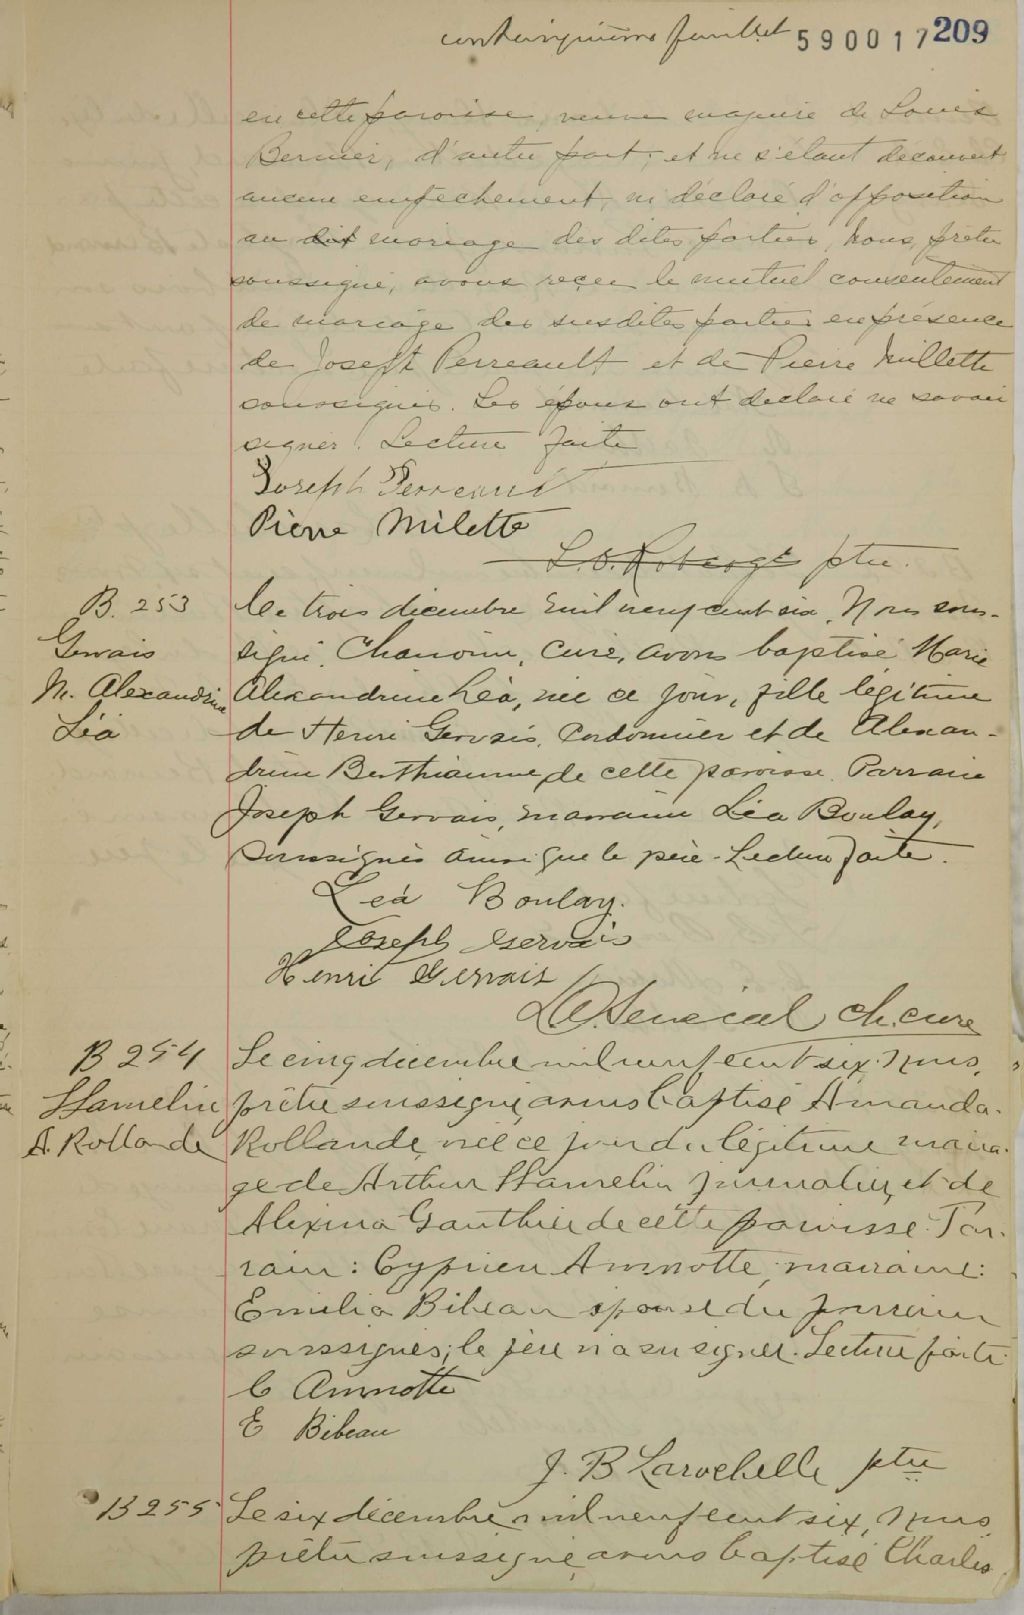 cent cinquième feuillet 590017 209
en cette paroisse, veuve majeure de Louis
Bernier, d'autre part; et ne s'étant découvert
aucun empêchement, ni déclaré d'opposition
au dit mariage des dites parties, Nous, prêtre
soussigné, avons reçu le mutuel consentement
de mariage des susdites parties en présence
de Joseph Perreault et de Pierre Millette
soussignés. Les époux ont déclaré ne savoir
signer. Lecture faite
Joseph Perreault
Pierre Milette
ptre.
B. 253
Gervais
M. Alexandrine
Léa
Le trois décembre mil neuf cent six, Nous sous-
signé, Chanoine, Curé, avons baptisé Marie
Alexandrine Léa, née ce jour, fille légitime
de Henri Gervais, Cordonnier et de Alexan-
drine Berthiaume, de cette paroisse. Parrain
Joseph Gervais, marraine Léa Boulay,
Soussignés ainsi que le père. Lecture faite.
Léa Boulay.
Joseph Gervais
Henri Gervais
Senécal ch. curé
B 254
Hamelin
A. Rollande
Le cinq décembre mil neuf cent six, Nous,
prêtre soussigné, avons baptisé Amanda-
Rollande, née ce jour du légitime maria-
ge de Arthur Hamelin journalier, et de
Alexina Gauthier de cette paroisse. Par-
rain: Cyprien Amnotte, marraine:
Emélia Bibeau épouse du parrain
soussignés; le père n'a su signer. Lecture faite.
C Amnotte
E Bibeau
J. B Larochelle ptre
B 255
Le six décembre mil neuf cent six, Nous,
prêtre soussigné, avons baptisé Charles